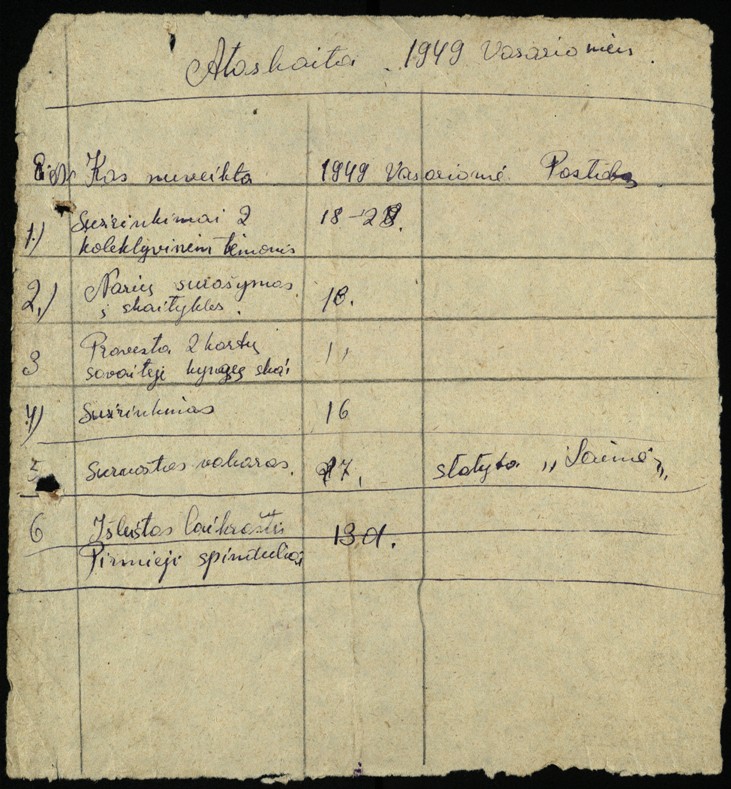 Ataskaita 1949 Vasario mėn.
Eil Nr Kas nuveikta 1949 Vasario mė Pastabos
1.) Susirinkimai 2 18-28.
kolektyviniem temomis
2.) Narių surašymas 18.
į skaityklas.
3 Pravesta 2 kartų 11
savaitėje knygų skai
4) Susirinkimas 16
5 Suruoštas vakaras. 27. statyta „Laimė„
6 Išleistas laikraštis 13 d.
Pirmieji spinduliai